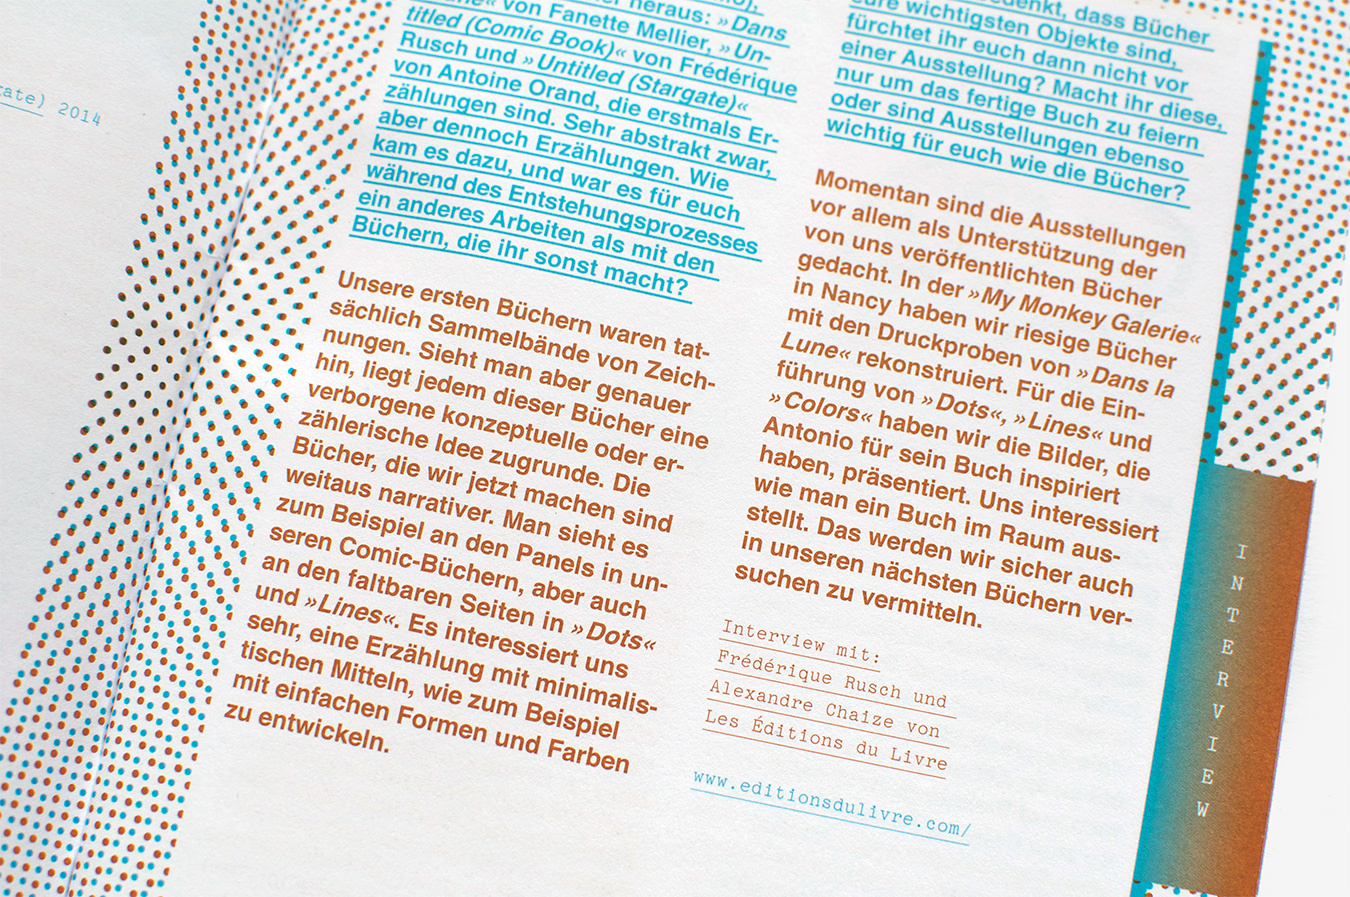 tate) 2014
heraus: »Dans
Lune« von Fanette Mellier, »Un-
titled (Comic Book)« von Frédérique
Rusch und »Untitled (Stargate)«
von Antoine Orand, die erstmals Er-
zählungen sind. Sehr abstrakt zwar,
aber dennoch Erzählungen. Wie
kam es dazu, und war es für euch
während des Entstehungsprozesses
ein anderes Arbeiten als mit den
Büchern, die ihr sonst macht?
Unsere ersten Büchern waren tat-
sächlich Sammelbände von Zeich-
nungen. Sieht man aber genauer
hin, liegt jedem dieser Bücher eine
verborgene konzeptuelle oder er-
zählerische Idee zugrunde. Die
Bücher, die wir jetzt machen sind
weitaus narrativer. Man sieht es
zum Beispiel an den Panels in un-
seren Comic-Büchern, aber auch
an den faltbaren Seiten in »Dots«
und »Lines«. Es interessiert uns
sehr, eine Erzählung mit minimalis-
tischen Mitteln, wie zum Beispiel
mit einfachen Formen und Farben
zu entwickeln.
dass Bücher
eure wichtigsten Objekte sind,
fürchtet ihr euch dann nicht vor
einer Ausstellung? Macht ihr diese,
nur um das fertige Buch zu feiern
oder sind Ausstellungen ebenso
wichtig für euch wie die Bücher?
Momentan sind die Ausstellungen
vor allem als Unterstützung der
von uns veröffentlichten Bücher
gedacht. In der »My Monkey Galerie«
in Nancy haben wir riesige Bücher
mit den Druckproben von »Dans la
Lune« rekonstruiert. Für die Ein-
führung von »Dots«, »Lines« und
»Colors« haben wir die Bilder, die
Antonio für sein Buch inspiriert
haben, präsentiert. Uns interessiert
wie man ein Buch im Raum aus-
stellt. Das werden wir sicher auch
in unseren nächsten Büchern ver-
suchen zu vermitteln.
Interview mit:
Frédérique Rusch und
Alexandre Chaize von
Les Éditions du Livre
www.editionsdulivre.com/
INTERVIEW